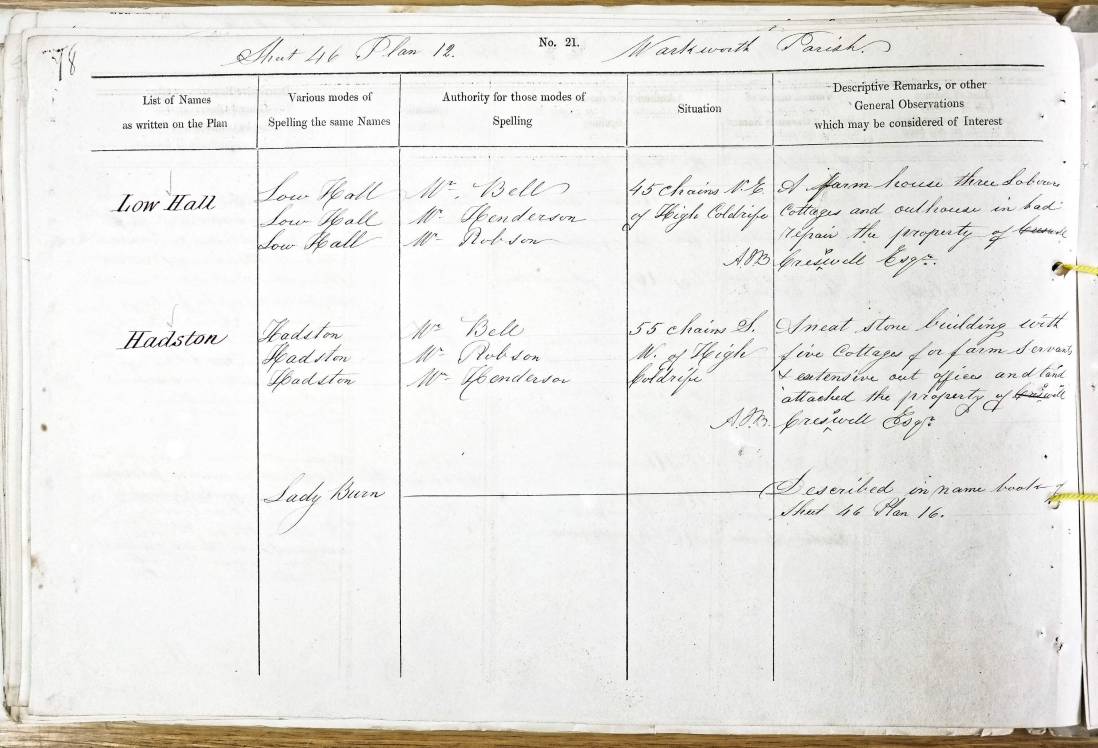 78
Sheet 46 Plan 12.
No. 21.
Warkworth Parish.
List of Names
as written on the Plan
Various modes of
Spelling the same Names
Authority for those modes of
Spelling
Situation
Descriptive Remarks, or other
General Observations
which may be considered of Interest
Low Hall
Low Hall
Low Hall
Low Hall
Mr. Bell
Mr. Henderson
Mr. Robson
45 chains N.E.
of High Coldrife
A farm house three Labours
Cottages and outhouse in bad
repair the property of
Creswell Esqr.
Hadston
Hadston
Hadston
Hadston
Mr. Bell
Mr. Robson
Mr. Henderson
55 chains S.
W. of High
Coldrife
A neat stone building with
five Cottages for farm Servants
& extensive out offices and land
attached the property of Creswell
Creswell Esqr.
Lady Burn
Described in name book of
Sheet 46 Plan 16.